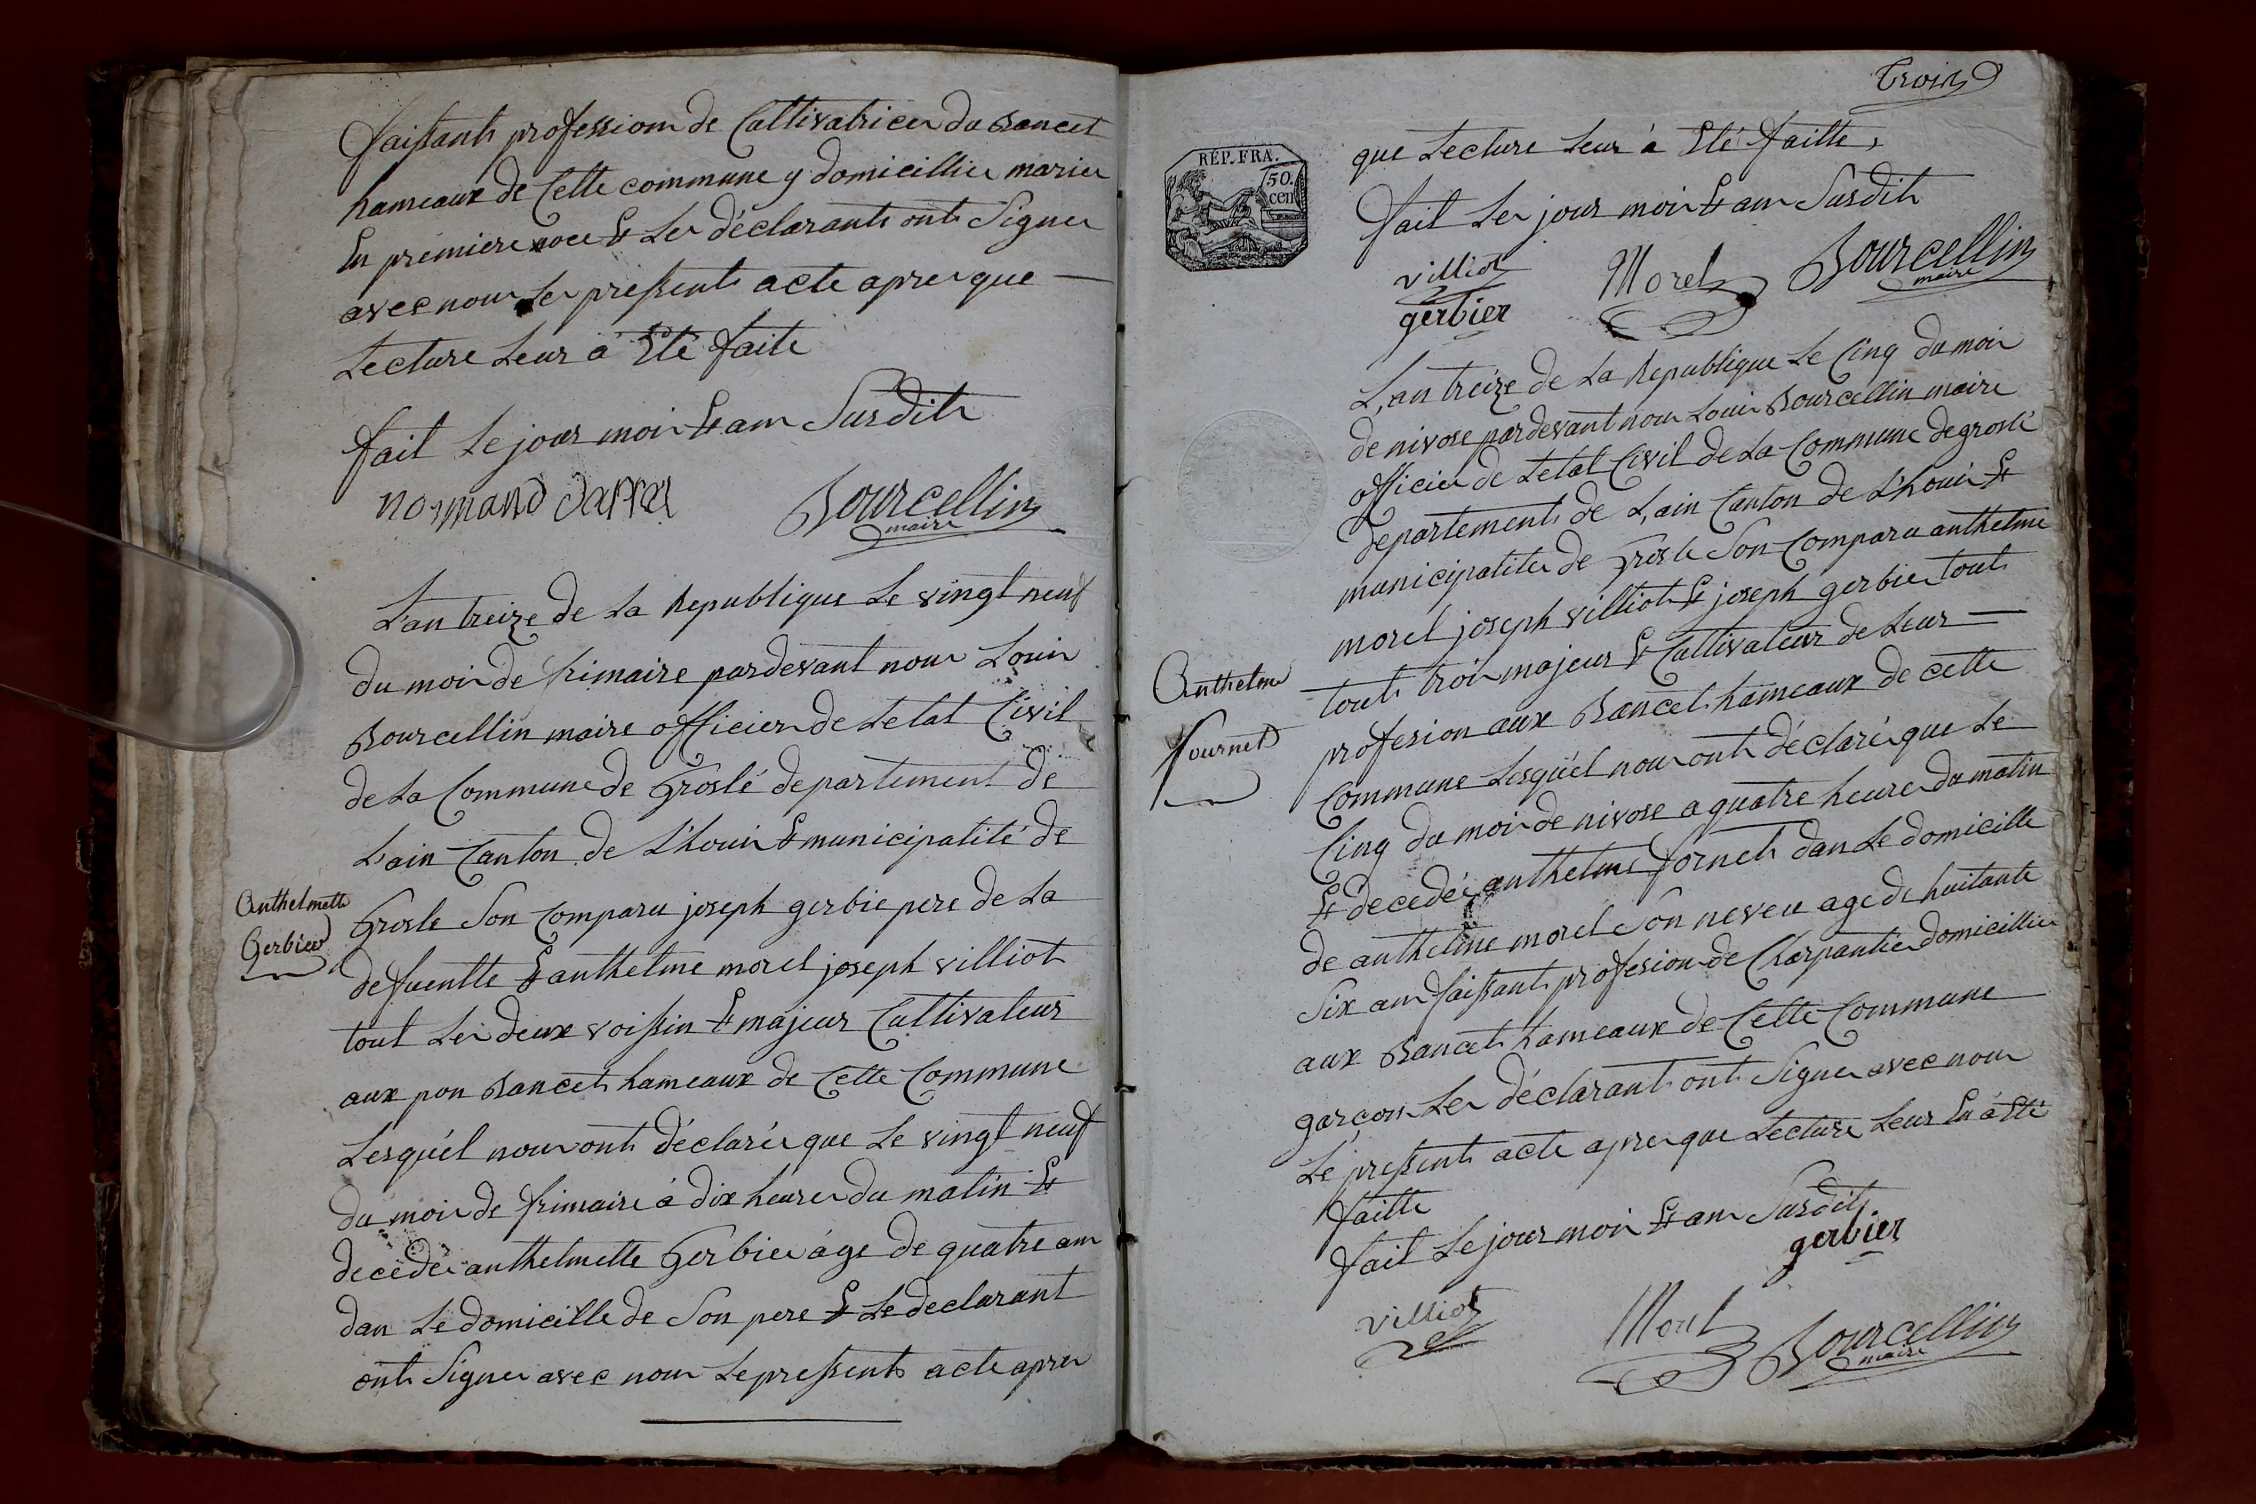 faissant profession de Cultivatrice du Bancet
hameaux de Cette commune y domicillié marié
En premiere noce Et Les déclarants ont Signer
avec nous Le present acte apres que
Lecture Leur a Eté faite
fait Le jour mois Et an Susdit
normand
Bourcellin
maire
L'an treize de La Republique Le vingt neuf
du mois de frimaire pardevant nous Louis
Bourcellin maire officier de Letat Civil
de La Commune de Groslé departement de
L'ain Canton de L'houis Et municipalité de
Anthelmette
Gerbier
Grosle Son Comparu joseph gerbie pere de La
defuentte Et anthelme morel joseph villiot
tout Les deux voissin Et majeur Cultivateur
aux pon Bancet hameaux de Cette Commune
Lesquél nous ont déclaré que Le vingt neuf
du mois de frimaire á dix heures du matin Et
decedé anthelmette Gerbier áge de quatre an
dan Le domicille de Son pere Et Le declarant
ont Signer avec nous Le present acte apres
Trois
REP. FRA.
50.
cen
que Lecture Leur á Eté faitte,
fait Le jour mois Et an Susdit
villiot
gerbier
Morel
Bourcellin
maire
L'an treize de La Republique Le Cinq du mois
de nivose pardevant nous Louis Bourcellin maire
officier de Letat Civil de La Commune de groslé
departement de L'ain Canton de L'houis Et
municipalite de Grosle Son Comparu anthelme
morel joseph villiot Et joseph gerbier tout
tout trois majeur Et Cultivateur de Leur
Anthelme
fournet
profesion aux Bancet hameaux de cette
Commune Lesquél nous ont déclaré que Le
Cinq du mois de nivose a quatre heure du matin
Et décedé anthelme fornet dan Le domicille
de anthelme morel Son neveu age de huitante
Six an faissant profesion de Charpantier domicillié
aux Bancet hameaux de Cette Commune
garcon Les déclarant ont Signer avec nous
Le present acte apres que Lecture Leur En á Eté
faitte
fait Le jour mois Et an Susdit
gerbier
villiot
Morel
Bourcellin
maire